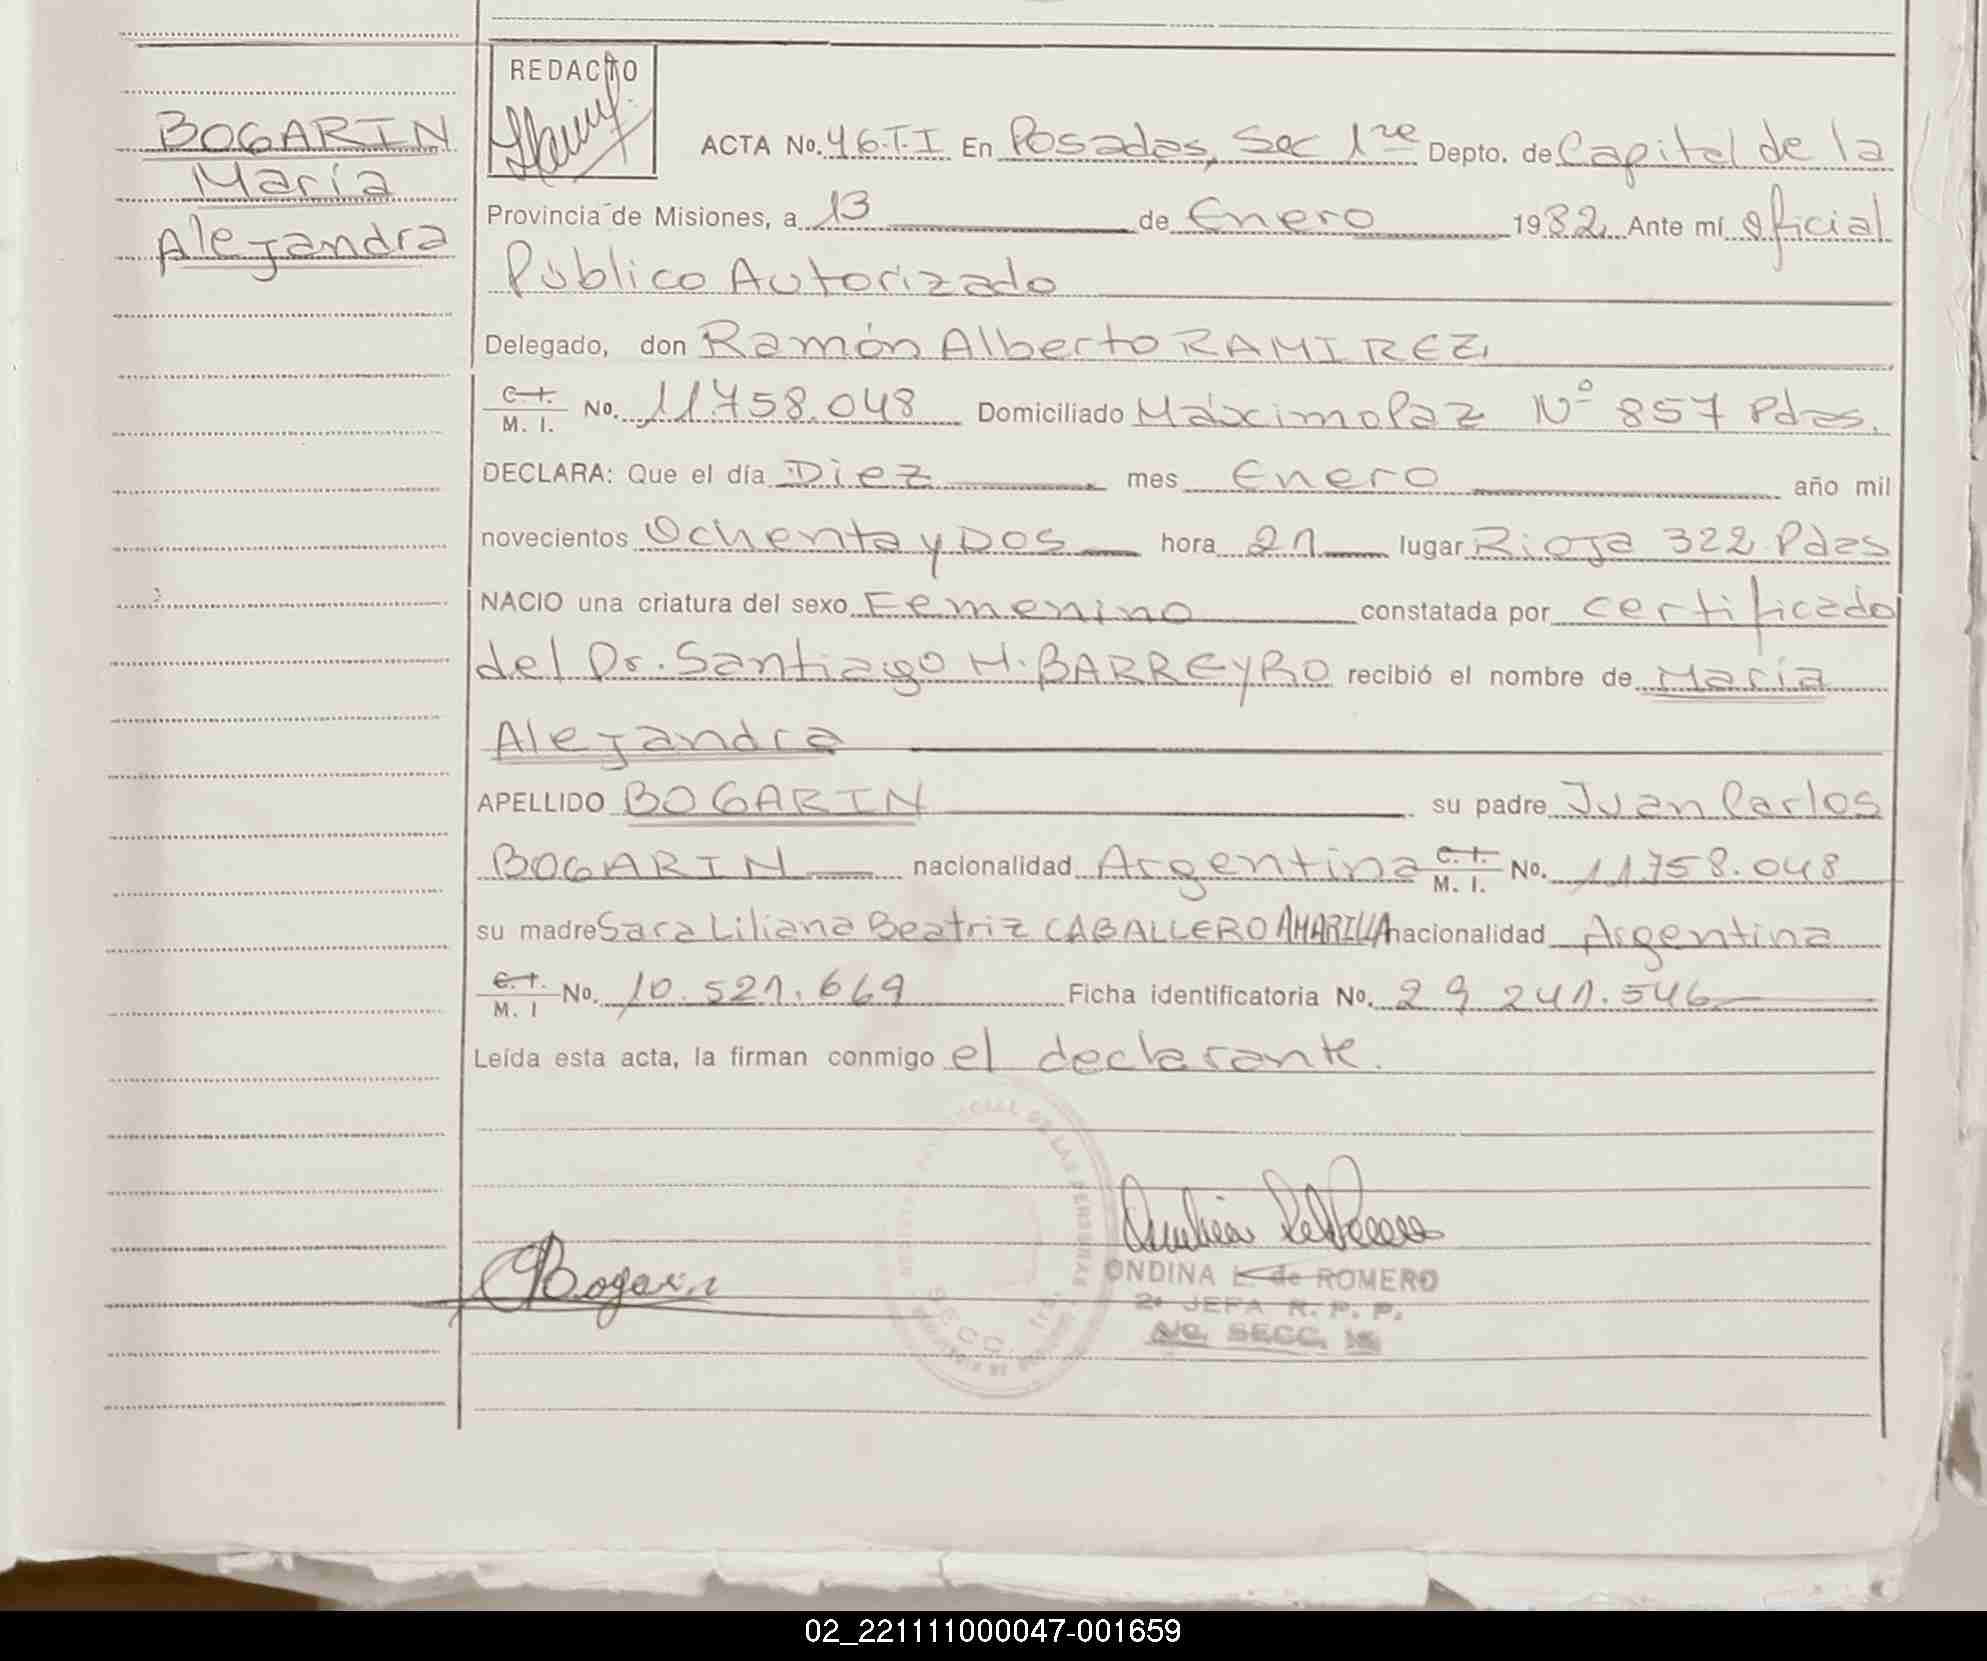 REDACTO
BOGARIN
María
Alejandra
ACTA No. 46.T.I En Posadas, Sec 1ra Depto. de Capital de la
Provincia de Misiones, a 13 de Enero 1982. Ante mí oficial
Público Autorizado
Delegado, don Ramón Alberto RAMIREZ,
C.I. M. I. No. 11.758.048 Domiciliado Máximo Paz Nº 857 Pdas.
DECLARA: Que el día Diez mes Enero año mil
novecientos Ochenta y Dos hora 21 lugar Rioja 322 Pdas
NACIO una criatura del sexo Femenino constatada por certificado
del Dr. Santiago H. BARREYRO recibió el nombre de María
Alejandra
APELLIDO BOGARIN su padre Juan Carlos
BOGARIN nacionalidad Argentina C.I. M. I. No. 11.758.048
su madre Sara Liliana Beatriz CABALLERO AMARILLA nacionalidad Argentina
C.I. M. I No. 10.521.669 Ficha identificatoria No. 29 241.546
Leída esta acta, la firman conmigo el declarante.
Bogarin
ONDINA L. de ROMERO
2ª JEFA R. P. P.
A/C. SECC. 1ª
SECC. 1ra.
02_221111000047-001659